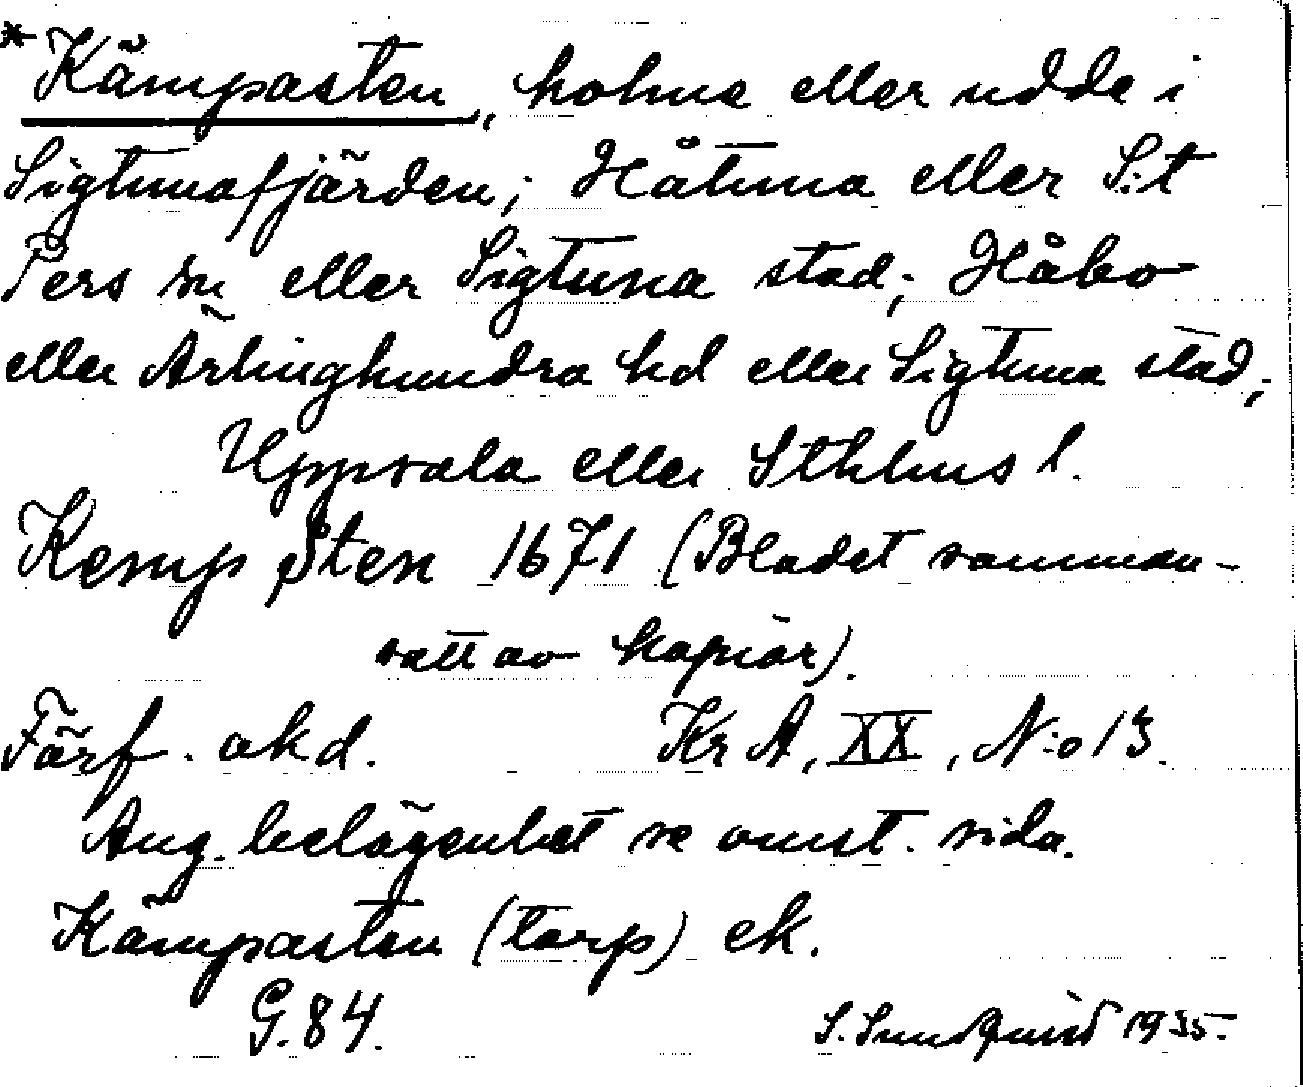 *Kämpasten, holme eller udde i
Sigtunafjärden; Håtuna eller S:t
Pers sn eller Sigtuna stad; Håbo
eller Ärlinghundra hd eller Sigtuna stad;
Uppsala eller Sthlms l.
Kemp Sten 1671 (Bladet samman-
satt av kopior).
Färf. akd. Kr A, XX, N:o 13.
Ang. belägenhet se omst. sida.
Kämpasten (torp) ek.
G. 84.
S. Sundquist 1935.